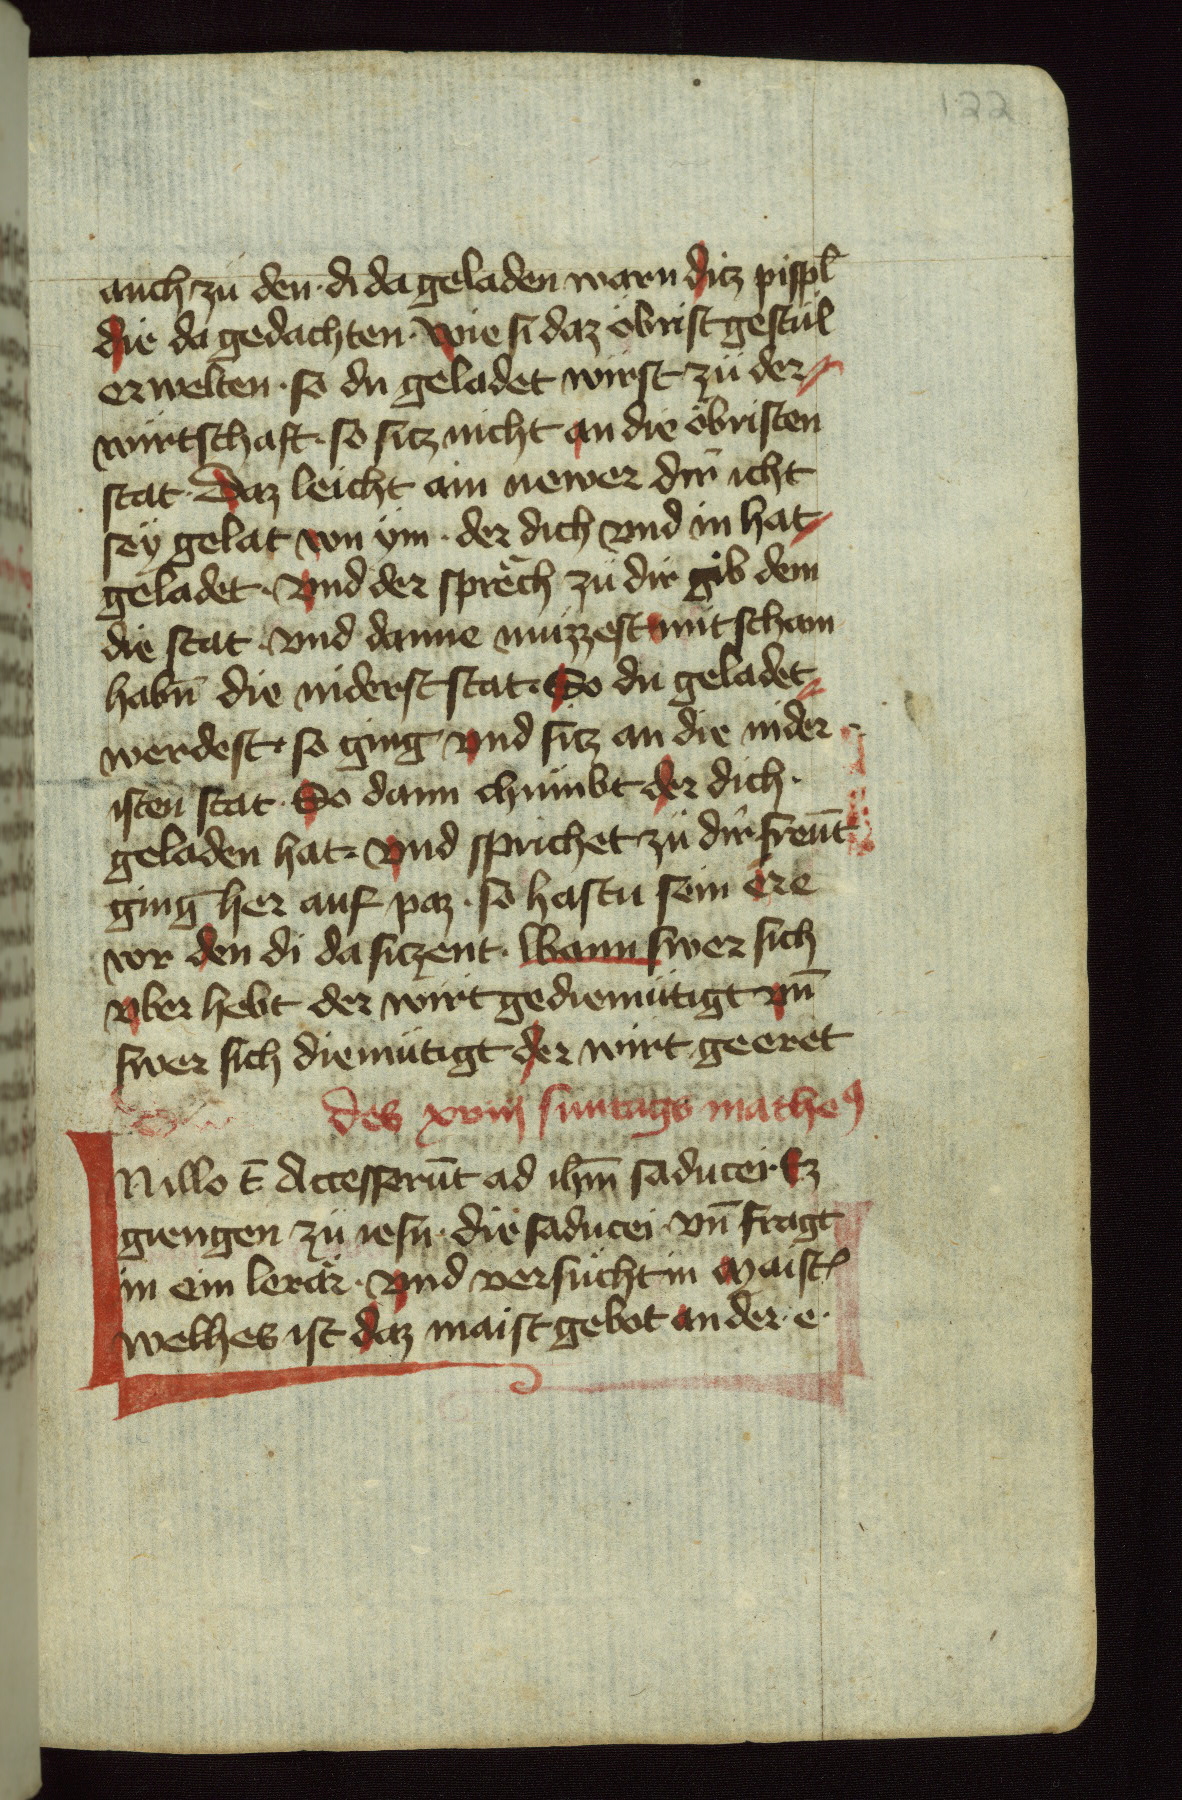 122
auch zu den · di da geladen warn ditz pispl
die da gedachten · wie si daz öbrist gestül
erwelten · so du geladet wirst zü der
wirtschaft · so sitz nicht an die öbristen
stat · Daz leicht ain newer dir icht
seÿ gelat von ÿm · der dich vnd in hat
geladet · vnd der sprech zu dir gib dem
die stat · vnd danne muzzest mit scham
habn̄ die niderst stat · So du geladet
werdest · so ging vnd sitz an die nider
isten stat · So dann chümbt der dich ·
geladen hat · vnd sprichet zü dir freūt
ging her auf paz · so hastu sein ere
vor den di da sizent · Wann swer sich
vber hebt der wirt gediemütigt vn̄
swer sich diemütigt der wirt geeret
des xviij suntags matheꝰ
INillo t̄ Accesserūt ad ihm̄ saducei · Ez
giengen zü iesu · die saducei · vn̄ fragt
in ein lerär · vnd versücht in Maist͛
welhes ist daz maist gebot an der · e ·